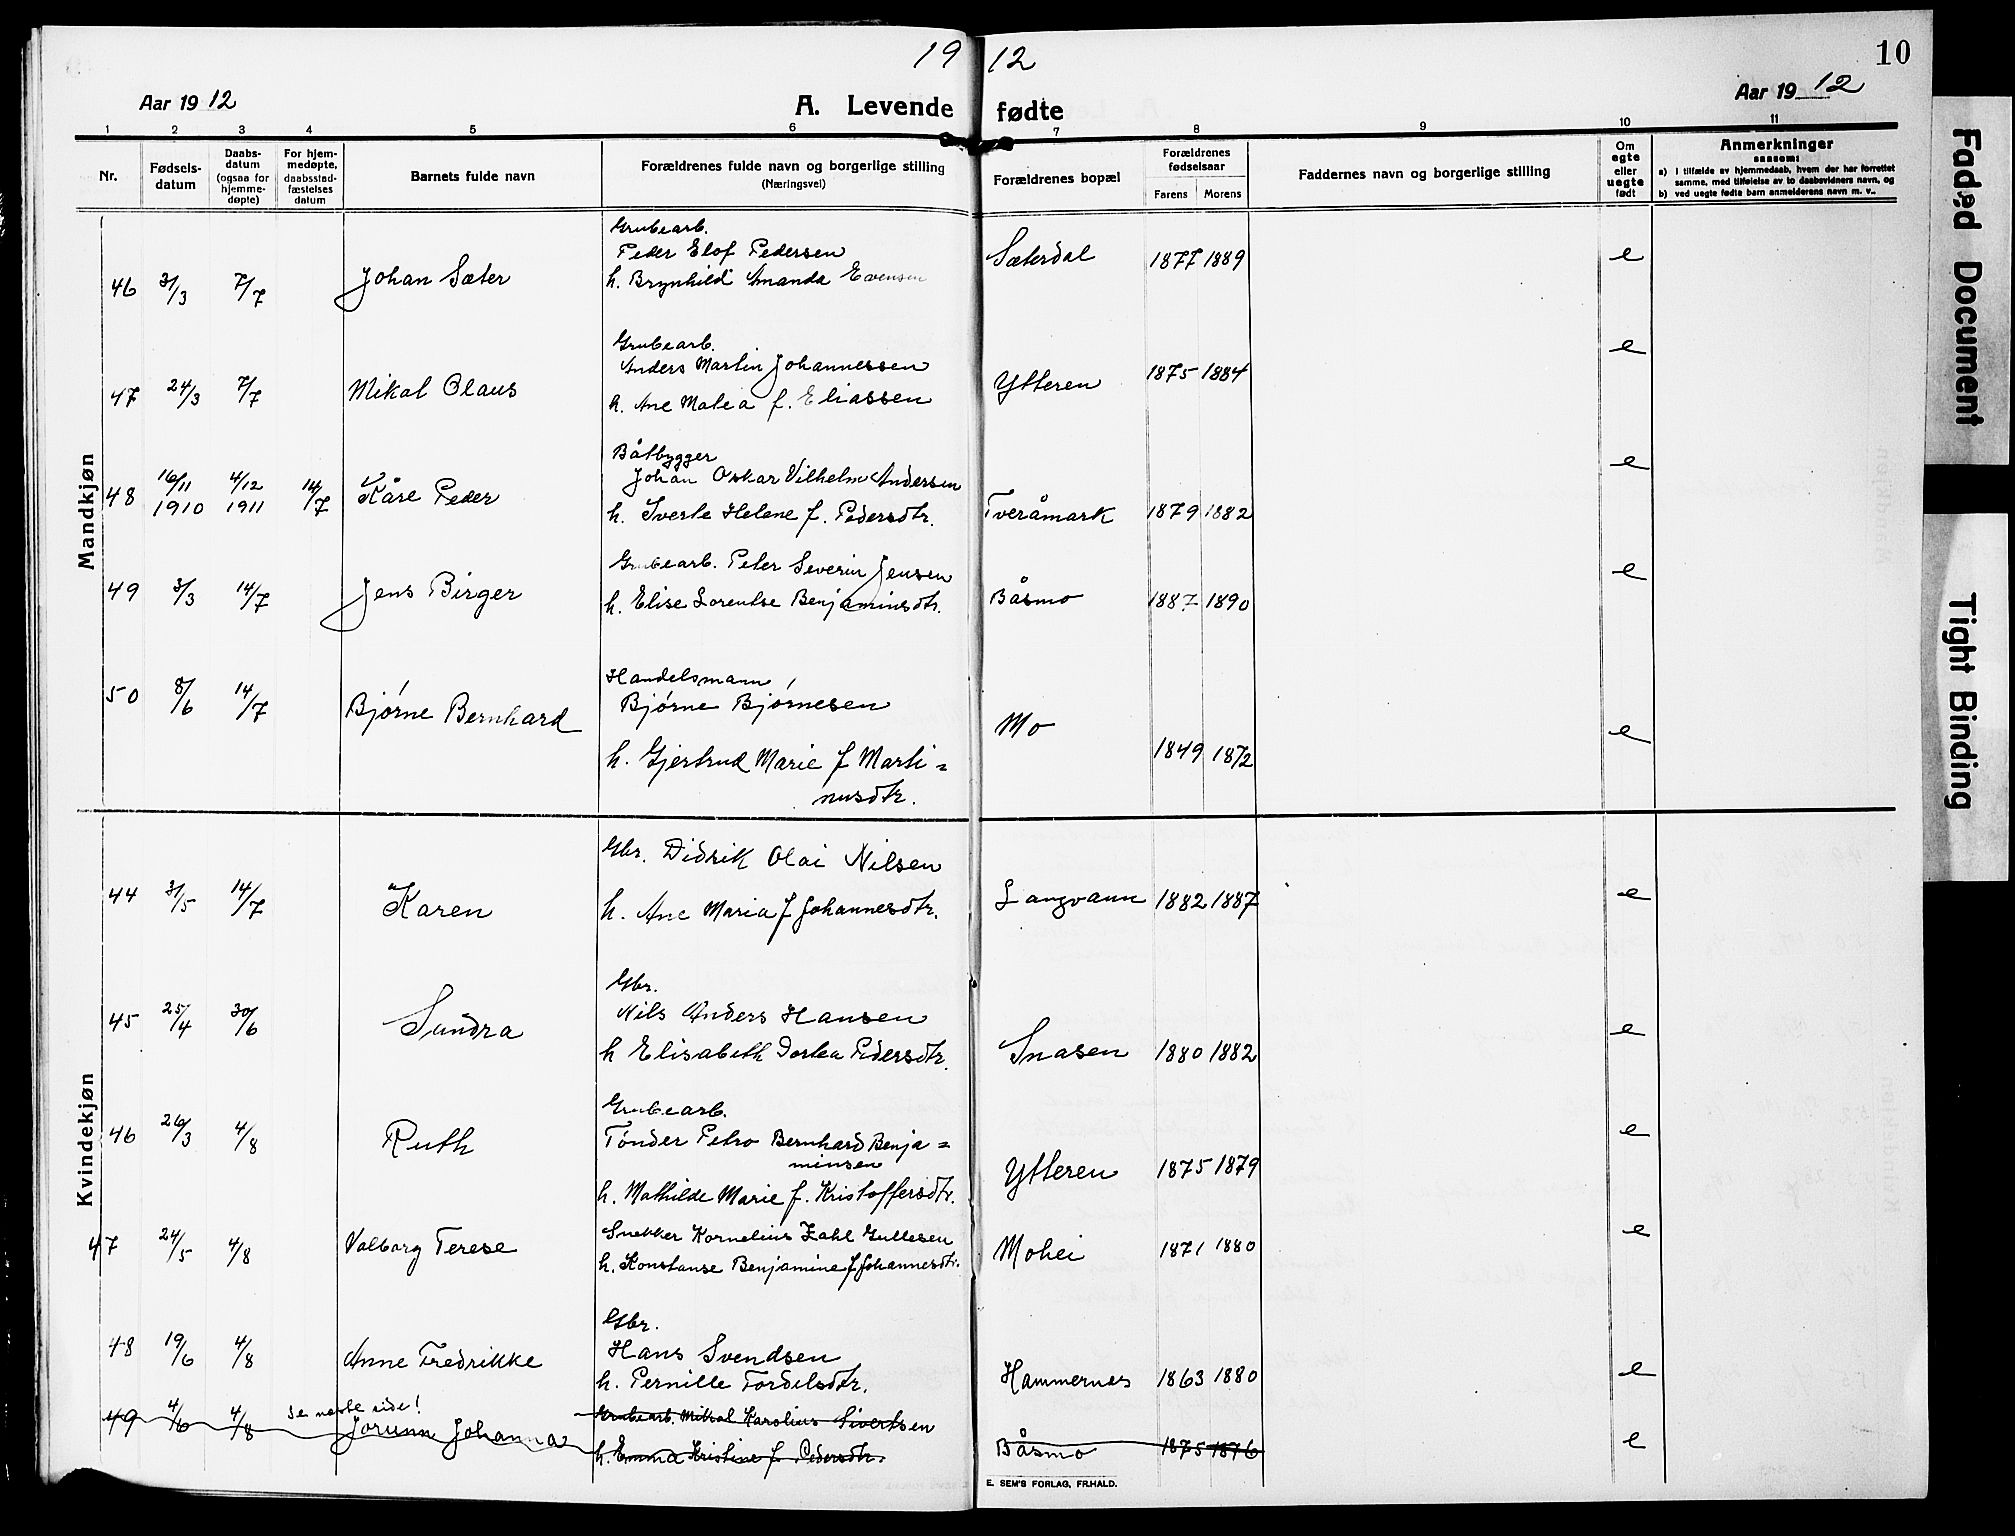 19 12
10
Aar 19 12
A. Levende fødte
Aar 19 12
1 2 3 4 5 6 7 8 9 10 11
Nr.
Fødsels-
datum
Daabs-
datum
(ogsaa for
hjemme-
døpte)
For hjem-
medøpte,
daabsstad-
fæstelses
datum
Barnets fulde navn
Forældrenes fulde navn og borgerlige stilling
(Næringsvei)
Forældrenes bopæl
Forældrenes
fødselsaar
Farens Morens
Faddernes navn og borgerlige stilling
Om
egte
eller
uegte
født
Anmerkninger
saasom:
a) i tilfælde av hjemmedaab, hvem der har forrettet
samme, med tilføielse av to daabsvidners navn, og
b) ved uegte fødte barn anmelderens navn m. v..
Mandkjøn
Grubearb.
Peder Elof Pedersen
46 31/3 7/7 Johan Sæter h. Brynhild Amanda Evensen Sæterdal 1877 1889 e
Grubearb.
Anders Martin Johannessen
47 24/3 7/7 Mikal Olaus h. Ane Malea f. Eliassen Ytteren 1875 1884 e
Båtbygger
Johan Oskar Vilhelm Andersen
48 16/11 1910 4/12 1911 14/7 Kåre Peder h. Sverle Helene f. Pedersdtr. Tveråmark 1879 1882 e
Grubearb. Peter Severin Jensen
49 3/3 14/7 Jens Birger h. Elise Lorentse Benjaminsdtr. Båsmo 1887 1890 e
Handelsmann
Bjørne Bjørnesen
50 8/6 14/7 Bjørne Bernhard h. Gjertrud Marie f Marti=
nusdtr. Mo 1849 1872 e
Kvindekjøn
Gbr. Didrik Olai Nilsen
44 31/5 14/7 Karen h. Ane Maria f Johannesdtr. Langvann 1882 1887 e
Gbr.
Nils Anders Hansen
45 25/4 30/6 Sundra h Elisabeth Dortea Pedersdtr. Snasen 1880 1882 e
Grubearb.
Tønder Petro Bernhard Benja=
minsen
46 26/3 4/8 Ruth h. Mathilde Marie f. Kristoffersdtr. Ytteren 1875 1879 e
Snekker Kornelius Zahl Gullesen
47 24/5 4/8 Valborg Terese h. Konstanse Benjamine f Johannesdtr. Mohei 1871 1880 e
Gbr.
Hans Svendsen
48 19/6 4/8 Anne Fredrikke h. Pernille Tordelsdtr. Hammernes 1863 1880 e
se næste side!
Grubearb. Mikal Karolius Sivertsen
49 4/6 4/8 Jorunn Johanna h. Emma Kristine f Pedersdtr. Båsmo 1875 1876 e
E. SEM'S FORLAG, FR.HALD.
Faded Document
Tight Binding